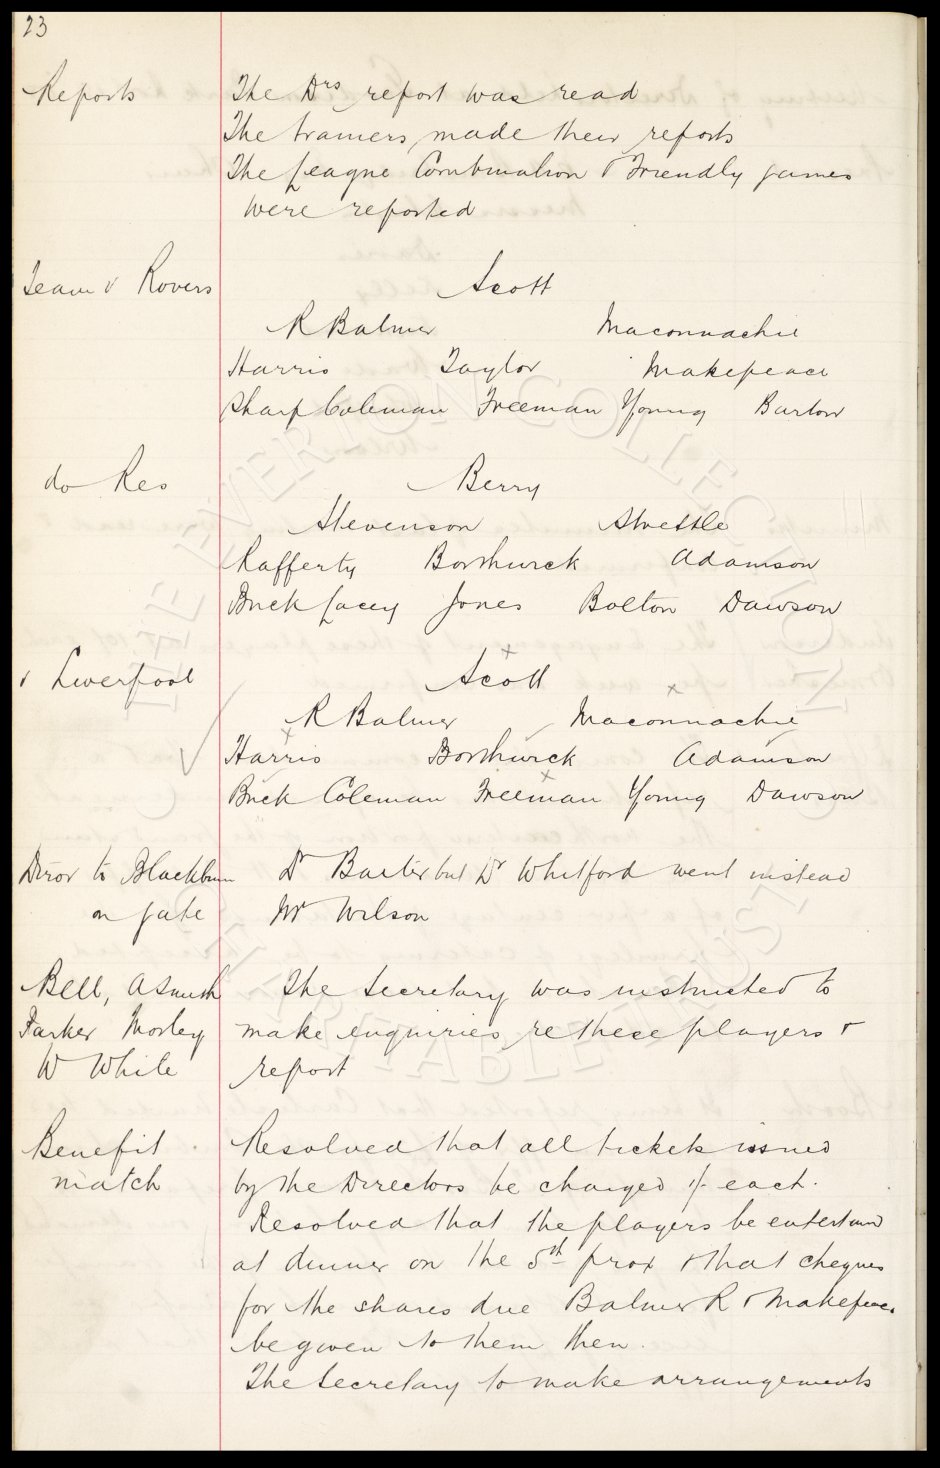 23
Reports The Drs report was read
The trainers made their reports
The League Combination & Friendly games
were reported
Team v Rovers Scott
R Balmer Maconnachie
Harris Taylor Makepeace
Sharp Coleman Freeman Young Barlow
do Res Berry
Stevenson Strettle
Rafferty Borthwick Adamson
Buck Lacey Jones Bolton Dawson
v Liverpool Scott
R Balmer Maconnachie
Harris Borthwick Adamson
Buck Coleman Freeman Young Dawson
Diror to Blackburn Dr Baxter but Dr Whitford went instead
on gate Mr Wilson
Bell, A Smith The Secretary was instructed to
Farker Morley make enquiries re these players &
W White report
Benefit Resolved that all tickets issued
match by the Directors be charged 1/- each.
Resolved that the players be entertained
at dinner on the 5th prox & that cheques
for the shares due Balmer R & Makepeace
be given to them then.
The Secretary to make arrangements
THE EVERTON COLLECTION
CHARITABLE TRUST